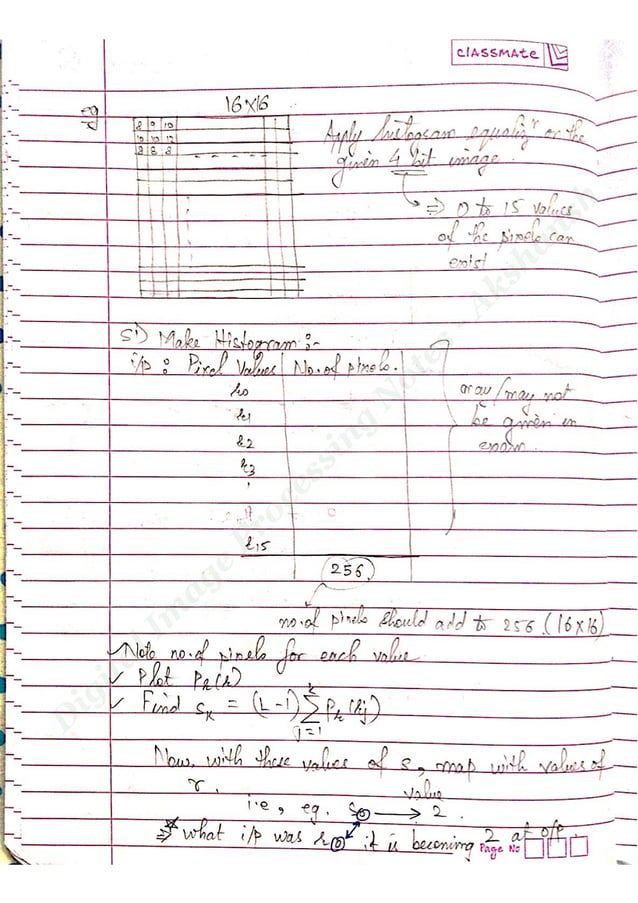 classmate
eg
16×16
8 9 10
10 10 12
8 8 8
Apply histogram equalizⁿ on the
given 4 bit image.
⇒ 0 to 15 values
of the pixels can
exist
S1) Make Histogram :-
i/p : Pixel Values | No. of pixels.
r0
r1
r2
r3
r15
256
may/may not
be given in
exam.
no. of pixels should add to 256. (16×16)
✓ Note no. of pixels for each value
✓ Plot Pr(r)
✓ Find sk = (L-1) k∑j=1 Pr(rj)
Now, with these values of s, map with values of
r.
value
i.e, eg. s0 → 2.
⇒ what i/p was r0 it is becoming 2 at o/p.
Page No
Digital Image Processing Notes - Akshansh